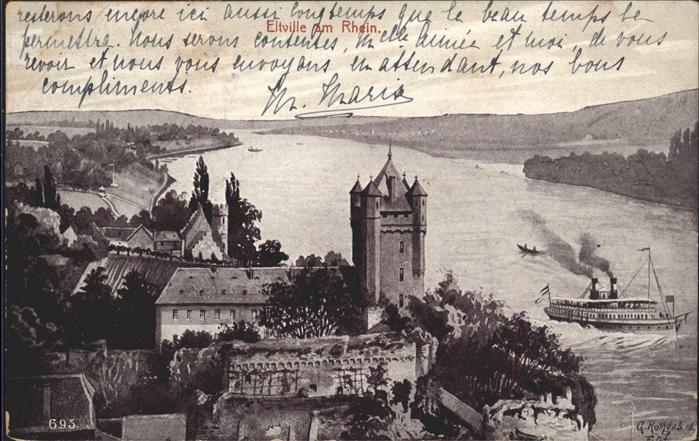 resterons encore ici aussi longtemps que le beau temps le
Eltville am Rhein.
permettra. Nous serons contentes, Mlle Aimée et moi de vous
revoir et nous vous envoyons en attendant, nos bons
compliments.
Maria
693.